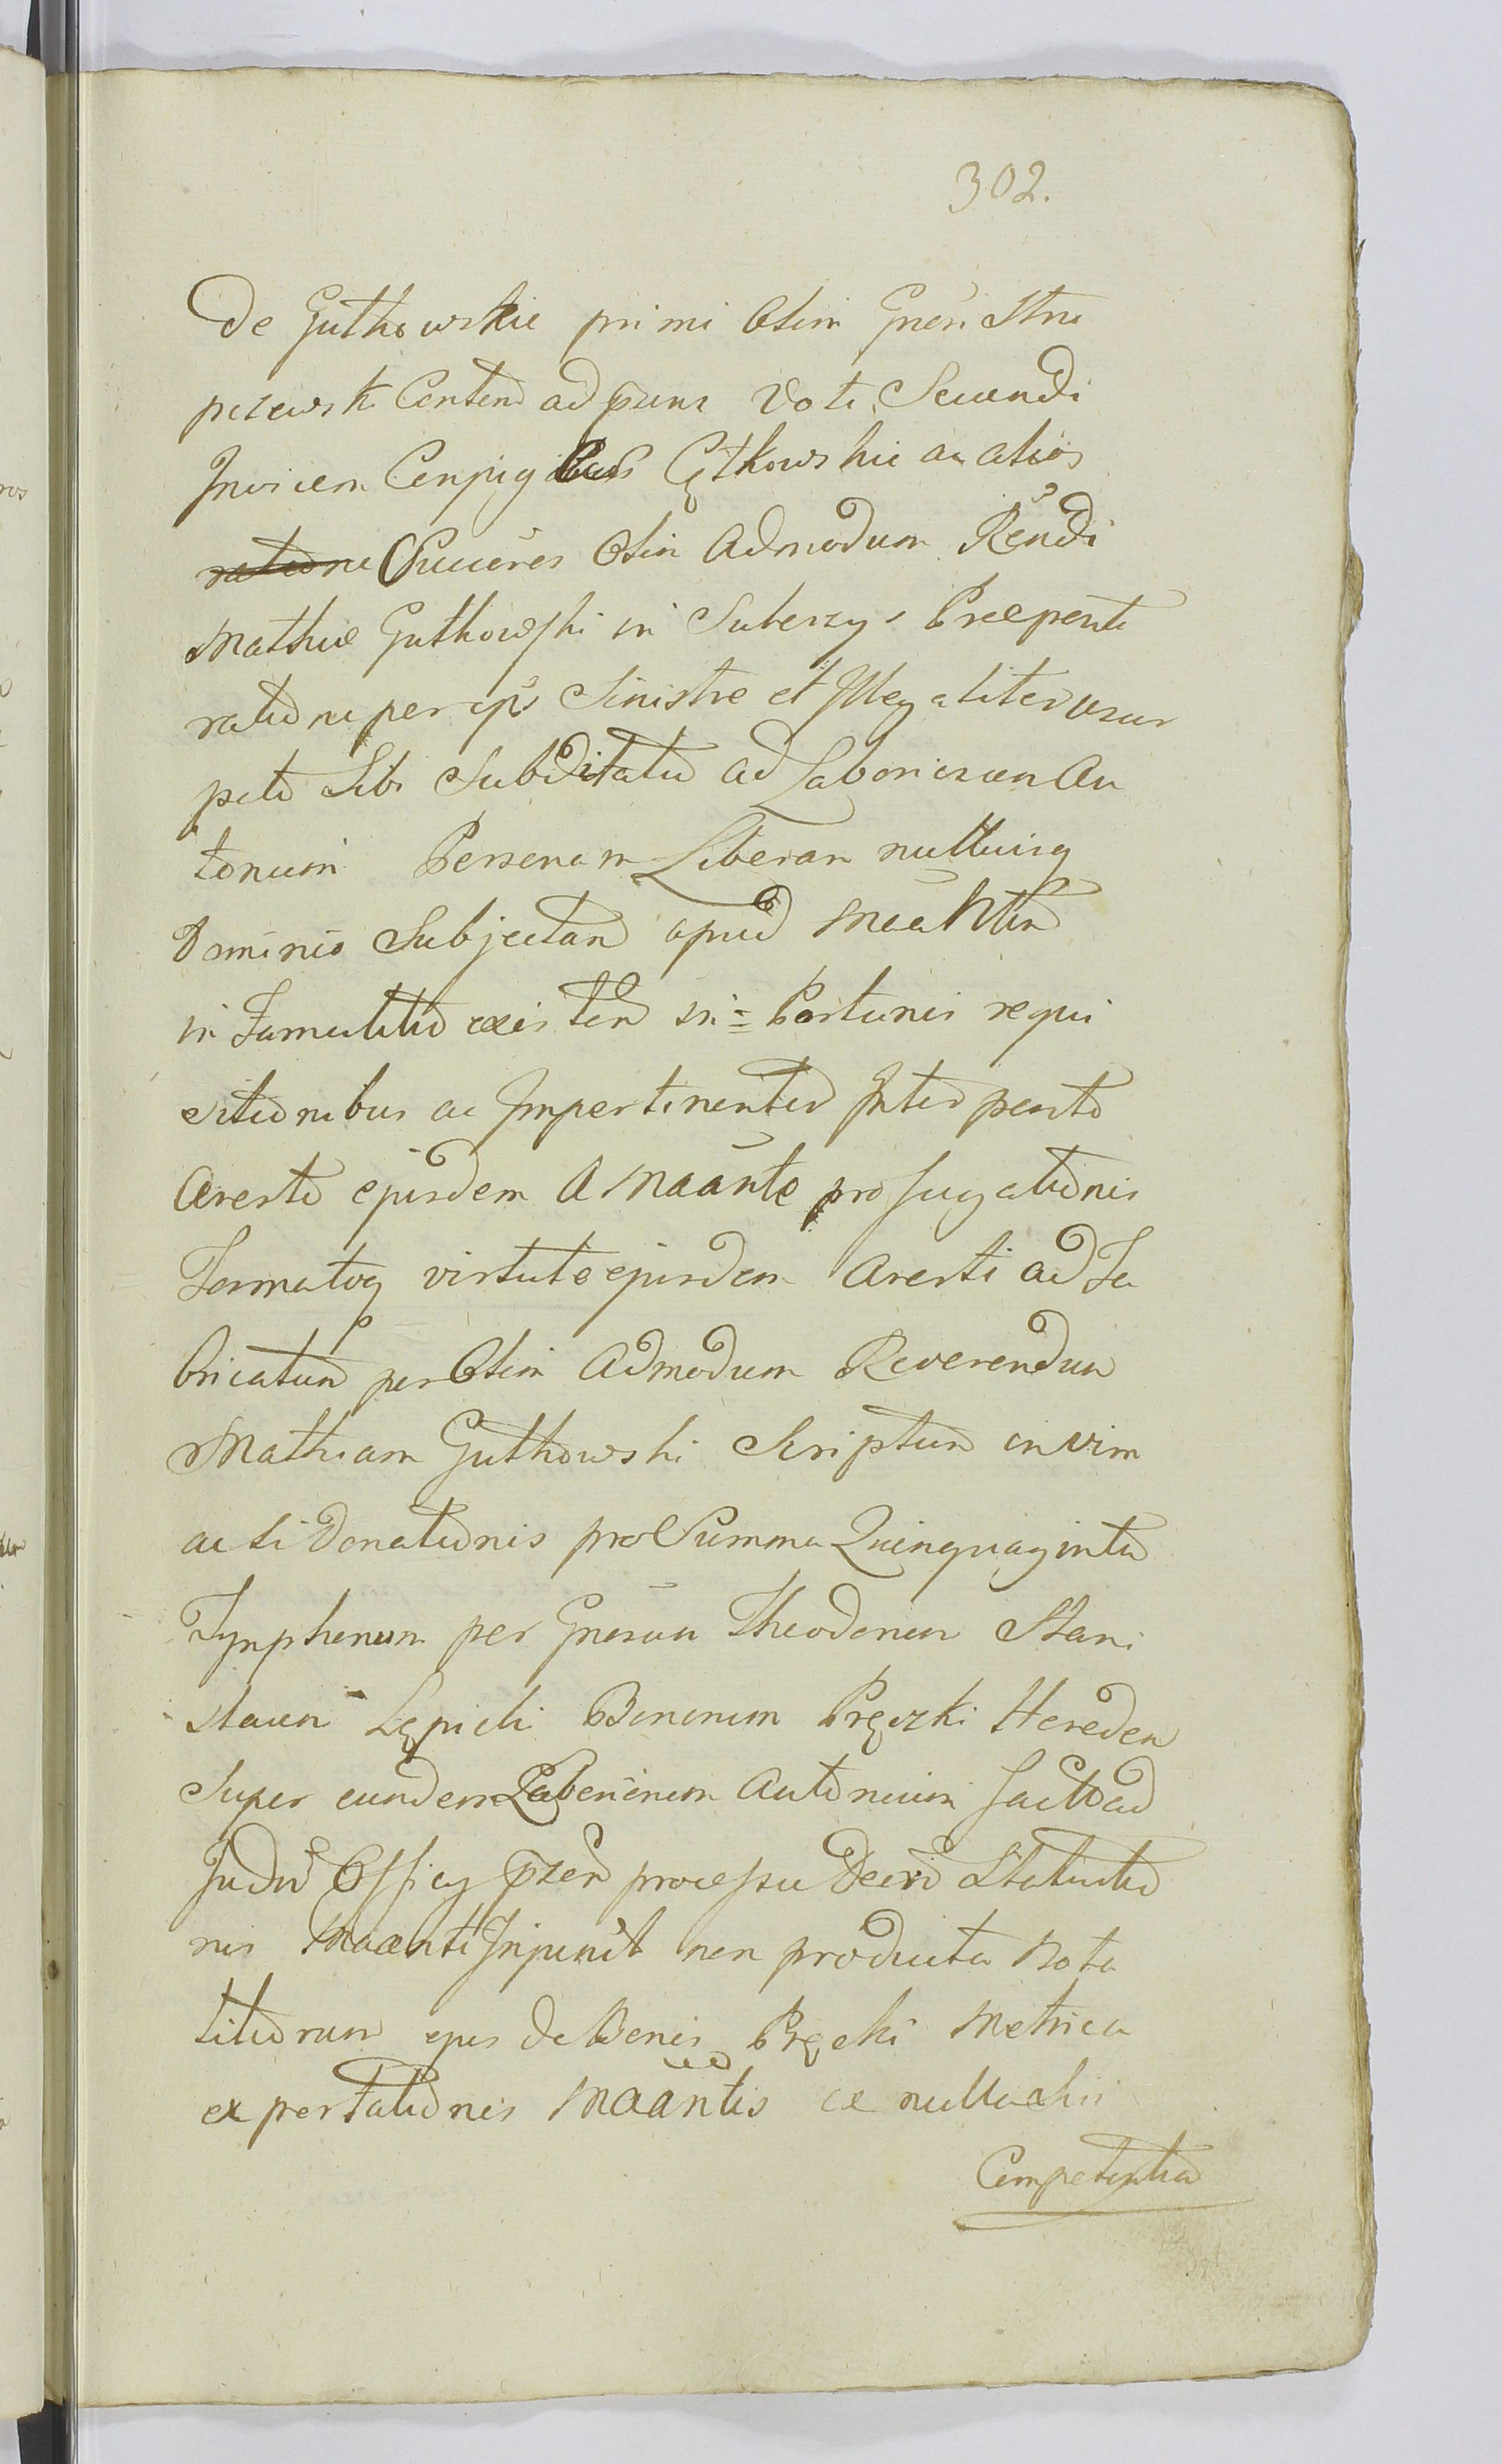 302.
De Gutkowskie primi Olim Gnёri Stru
pczewsk Contend ad p̄sens Voti Secundi
Invicem Conjug Gętkowskie ac alios
Succēres Olim Admodum Rēndi
Mathiæ Gutkowski in Suberzys Præpenti
ratione per ips Sinistre et Illegaliter usur
pato Sibi Subditatu ad Laboriosum An
tonium Personam Liberam nulliusq
Dominio Subjectam apud Māāntem
in Famulitio existen in= Portunis requi
sitionibus ac Impertinenter Interpento
Aresto ejusdem a Māānte profugationis
Formatoq virtute ejusdem Aresti ad Fa
bricatum per Olim Admodum Reverendum
Mathiam Gutkowski Scriptum in vim
acti Donationis pro Summa Quinquaginta
Tynphonum per Gnēsum Theodorum Stani
slaum Lępicki Bonorum Pręczki Heredem
Super eundem Laboriosum Antonium facto ad
Judm Officy p̄sen processu Decr
nis Maanti Injunct non producta Nota
titiorum ejus de Bonis Pręcki Metrica
expertationis Māāntis ac nulla
Competentia